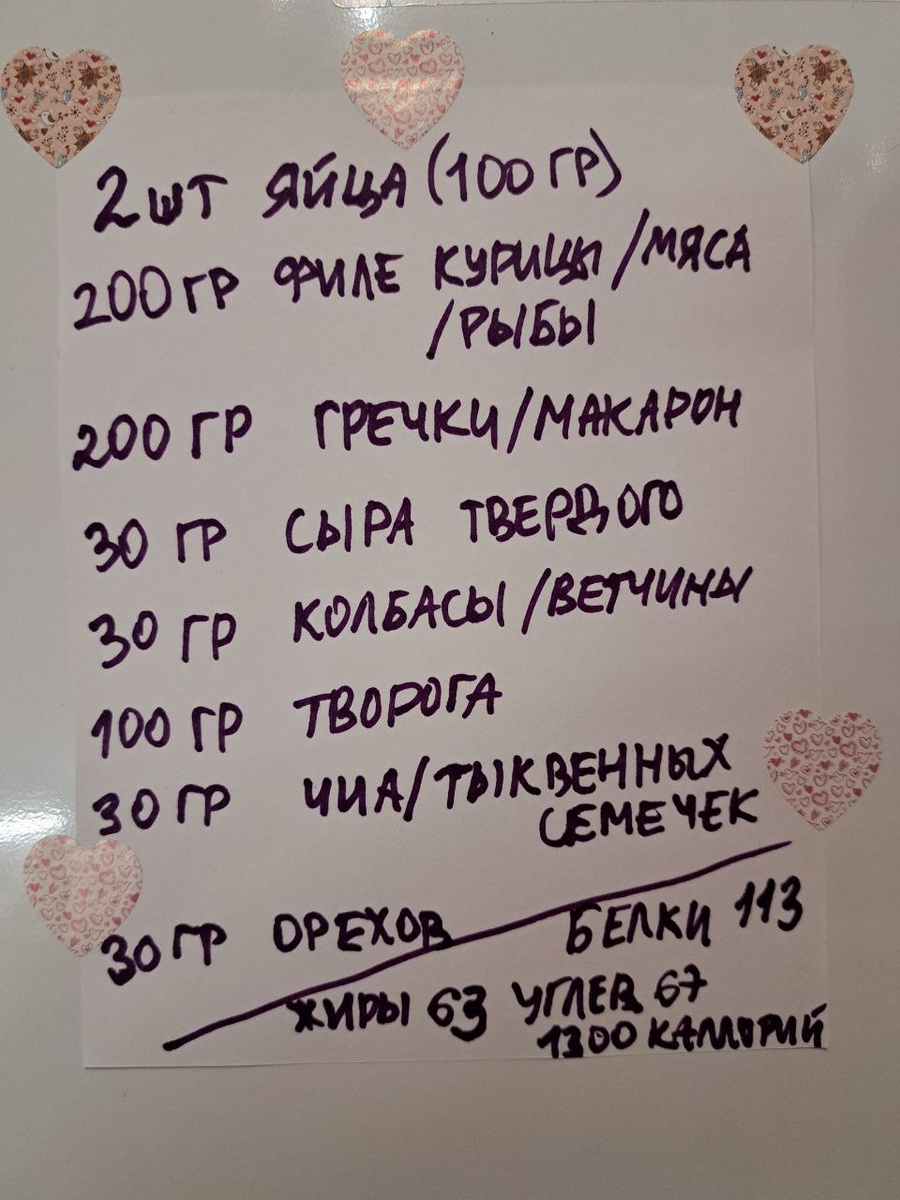 2 шт яйца (100 гр)
200 гр филе курицы/мяса
/рыбы
200 гр гречки/макарон
30 гр сыра твердого
30 гр колбасы/ветчины
100 гр творога
30 гр чиа/тыквенных
семечек
30 гр орехов
Белки 113
жиры 63 углев 67
1300 каллорий